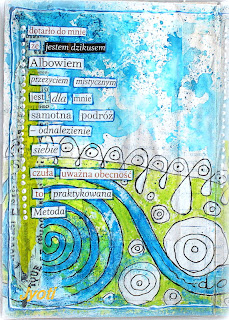 dotarło do mnie
że jestem dzikusem
Albowiem
przeżyciem mistycznym
jest dla mnie
samotna podróż
odnalezienie
siebie
czuła uważna obecność
to praktykowana
Metoda
do
Jyoti